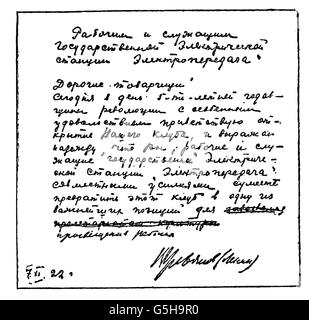 Рабочим и служащим
Государственной Электрической
станции „Электропередача“
Дорогие товарищи!
Сегодня в день 5-ти-летней годов-
щины революции с особенным
удовольствием приветствую от-
крытие Вашего клуба, и выражаю
надежду, что Вы, рабочие и слу-
жащие государственной Электриче-
ской Станции „Электропередача“
совместными усилиями, сумеете
превратить этот клуб в один из
важнейших позиций для
просвещения рабочих
7/XI. 22 г.
В Ульянов (Ленин)
alamy
G5H9R0